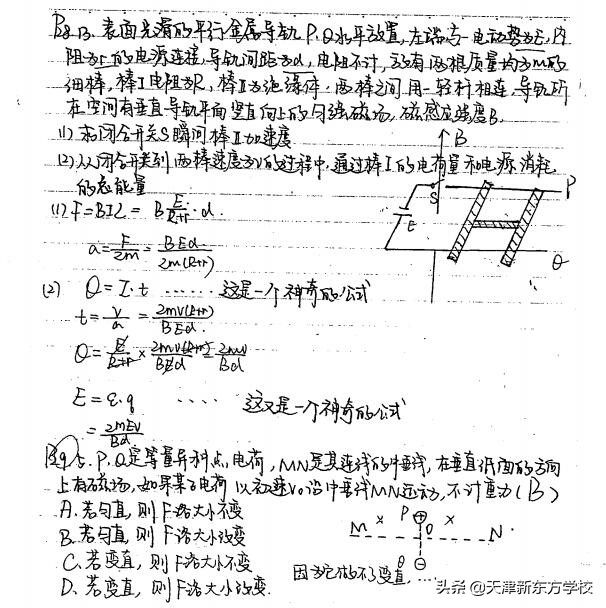 P88 13. 表面光滑的平行金属导轨P、Q水平放置,左端与一电动势为E,内
阻为r的电源连接,导轨间距为d,电阻不计,改有两根质量均为m的
细棒,棒I电阻为R,棒II为绝缘体,两棒之间用一轻杆相连,导轨所
在空间有垂直导轨平面竖直向上的匀强磁场,磁感应强度B.
(1) 求闭合开关S瞬间棒II加速度
(2) 从闭合开关到两棒速度为v的过程中,通过棒I的电荷量和电源消耗
的总能量
B
S
E
P
Q
(1) F=BIL= B E/(R+r)·d.
a=F/2m = BEd/2m(R+r)
(2) Q=I·t ······ 这是一个神奇的公式
t=v/a=2mv(R+r)/BEd
Q=E/(R+r)×2mv(R+r)/BEd=2mv/Bd
E=ε·q ···· 这又是一个神奇的公式
=2mEv/Bd
5. P、Q是等量异种点电荷,MN是其连线的中垂线,在垂直纸面的方向
上有磁场,如果某电荷以初速v₀沿中垂线MN运动,不计重力(B)
A. 若匀直,则F洛大小不变
B. 若匀直,则F洛大小改变
C. 若变直,则F洛大小不变
D. 若变直,则F洛大小改变.
M × P ⊕ O × N
Q ⊖
因为它做不了变直, ···
头条 @天津新东方学校